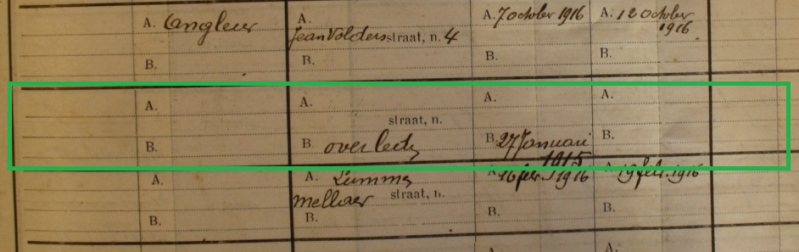 A. Angleur A. A. 7 october 1916 A. 12 October 1916
Jean Volders straat, n. 4
B. B. B. B.
A. A. A. A.
straat, n.
B. B. overleden B. 27 Januari 1915 B.
A. A. Lummen A. 16 febr. 1916 A. 19 febr. 1916
straat, n.
B. B. B. B.
A. A.